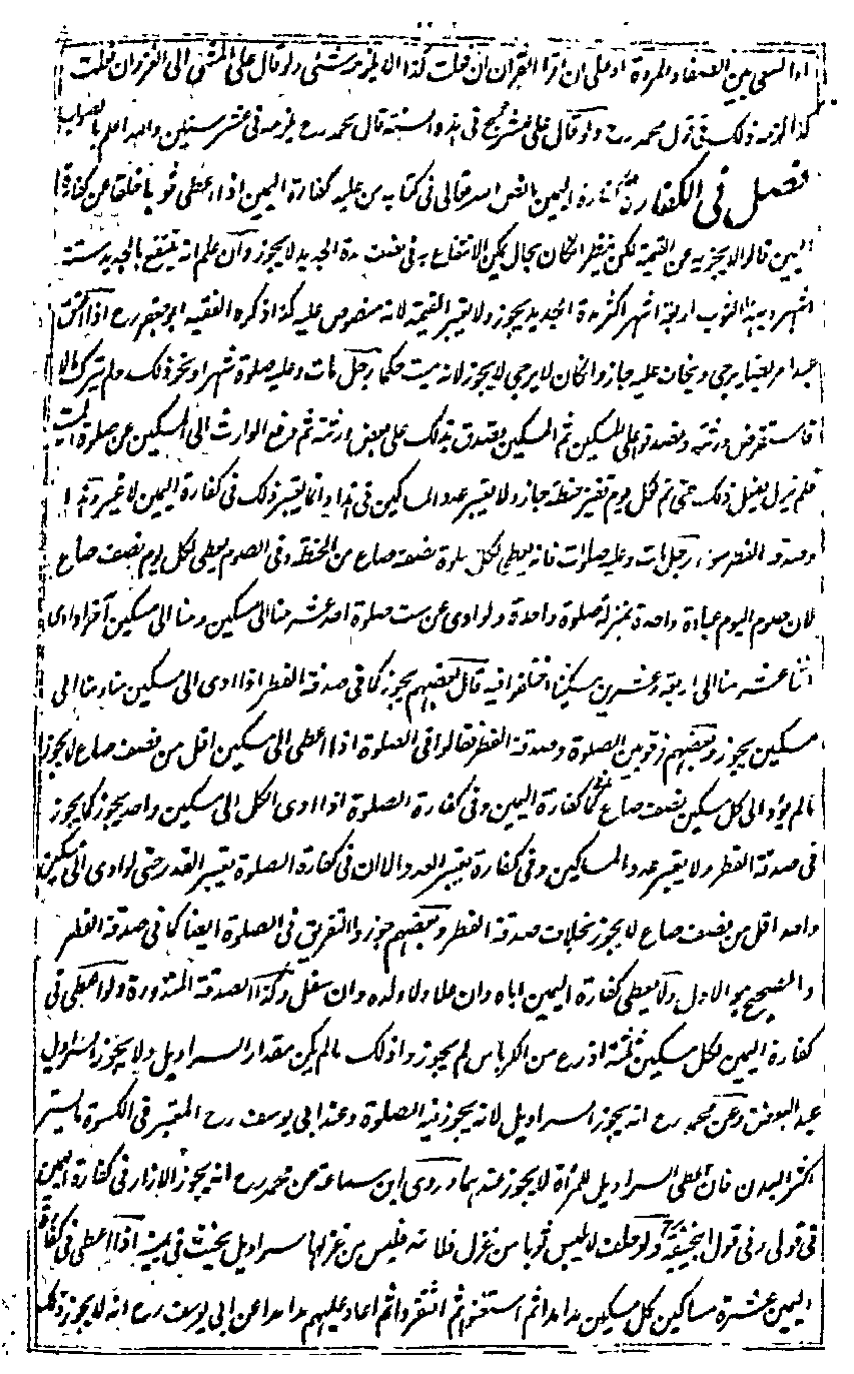 او السعى بين الصفا والمروة او على ان اقرأ القرآن ان فعلت كذا لا يلزمه شئ ولو قال على المشى الى الغزو ان فعلت
كذا لزمه ذلك فى قول محمد رح ولو قال على عشر حجج فى هذه السنة قال محمد رح يلزمه فى عشر سنين والله اعلم بالصواب
فصل فى الكفارة كفارة اليمين ما نص الله تعالى فى كتابه من عليه كفارة اليمين اذا اعطى ثوبا خلقا عن كفارة
اليمين قالوا لا يجزيه عن القيمة لكن ينظر ان كان بحال يمكن الانتفاع به فى نصف مدة الجديد لا يجوز وان علم انه ينتفع بالجديد ستة
اشهر وبهذا الثوب اربعة اشهر اكثر مدة الجديد يجوز ولا يعتبر القيمة لانه منصوص عليه كذا ذكره الفقيه ابو جعفر رح اذا اعتق
عبدا مريضا يرجى ويخاف عليه جاز وان كان لا يرجى لا يجوز لانه ميت حكما رجل مات وعليه صلوة شهر او نحو ذلك ولم يترك مالا
فاستقرض ورثته وتصدقوا على المسكين ثم المسكين يتصدق بذلك على بعض ورثته ثم دفع الوارث الى المسكين عن صلوة الميت
فلم يزل يفعل ذلك حتى تم لكل يوم قفيز حنطة جاز ولا يعتبر عدد المساكين فى هذا وانما يعتبر ذلك فى كفارة اليمين لا غير وهذا
وصدقة الفطر سواء رجل مات وعليه صلوات فانه يعطى لكل صلوة نصف صاع من الحنطة وفى الصوم يعطى لكل يوم نصف صاع
لان صوم اليوم عبادة واحدة بمنزلة صلوة واحدة ولو ادى عن ست صلوة احد عشر منا الى مسكين ومنا الى مسكين آخر او ادى
اثنا عشر منا الى اربعة وعشرين مسكينا اختلفوا فيه قال بعضهم يجوز كما فى صدقة الفطر اذا ادى الى مسكين منا ومنا الى
مسكين يجوز وبعضهم فرقو بين الصلوة وصدقة الفطر فقالوا فى الصلوة اذا اعطى الى مسكين اقل من نصف صاع لا يجوز
ما لم يؤد الى كل مسكين نصف صاع كما كفارة اليمين وفى كفارة الصلوة اذا ادى الكل الى مسكين واحد يجوز كما يجوز
فى صدقة الفطر ولا يعتبر عدد المساكين وفى كفارة يعتبر العدد الا ان فى كفارة الصلوة يعتبر القدر حتى لو ادى الى مسكين
واحد اقل من نصف صاع لا يجوز بخلاف صدقة الفطر وبعضهم جوزوا التفريق فى الصلوة ايضا كما فى صدقة الفطر
والصحيح هو الاول ولا يعطى كفارة اليمين اباه وان علا ولا ولده وان سفل وكذا الصدقة المنذورة ولو اعطى فى
كفارة اليمين لكل مسكين ثلثة اذرع من الكرباس لم يجوز واذلك ما لم يكن مقدار السراويل ولا يجوز السراويل
عند البعض وعن محمد رح انه يجوز السراويل لانه يجوز فيه الصلوة وعند ابى يوسف رح المعتبر فى الكسوة ما يستر
اكثر البدن فان اعطى السراويل للمرأة لا يجوز عندهما وروى ابن سماعة عن محمد رح انه يجوز الازار فى كفارة اليمين
فى قولى وفى قول ابى حنيفة رح ولو حلف لا يلبس ثوبا من غزل فلانة فلبس من غزلها سراويل يحنث فى يمينه اذا اعطى فى كفارة
اليمين عشرة مساكين كل مسكين مدا مدا ثم استغنوا ثم افتقروا ثم اعاد عليهم مدا مدا عن ابى يوسف رح انه لا يجوز ذلك